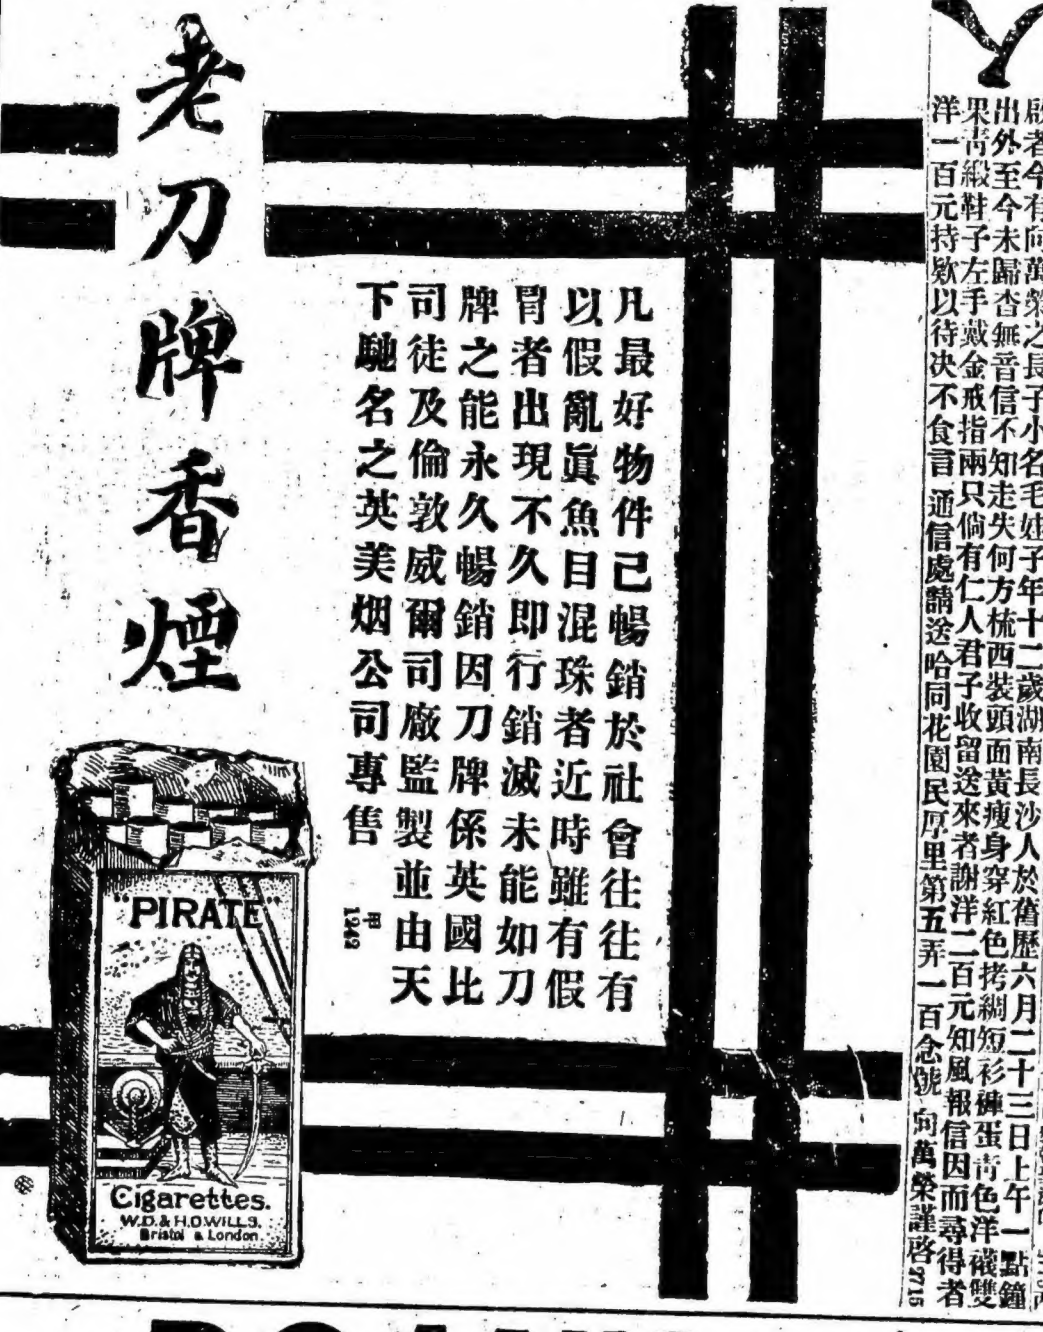 啟者今有向萬榮之長子小名毛娃子年十二歲湖南長沙人於舊歷六月二十三日上午一點鐘
出外至今未歸杳無音信不知走失何方梳西裝頭面黃瘦身穿紅色拷綢短衫褲蛋青色洋襪雙
果青緞鞋子左手戴金戒指兩只倘有仁人君子收留送來者謝洋二百元知風報信因而尋得者
洋一百元持欵以待决不食言 通信處請送哈同花園民厚里第五弄一百念號 向萬榮謹啓 2715
老刀牌香煙
凡最好物件己暢銷於社會往往有
以假亂眞魚目混珠者近時雖有假
冐者出現不久即行銷滅未能如刀
牌之能永久暢銷因刀牌係英國比
司徒及倫敦威爾司廠監製並由天
下馳名之英美烟公司專售
甲
1242
"PIRATE"
Cigarettes.
W.D. & H.O. WILLS.
Bristol & London.